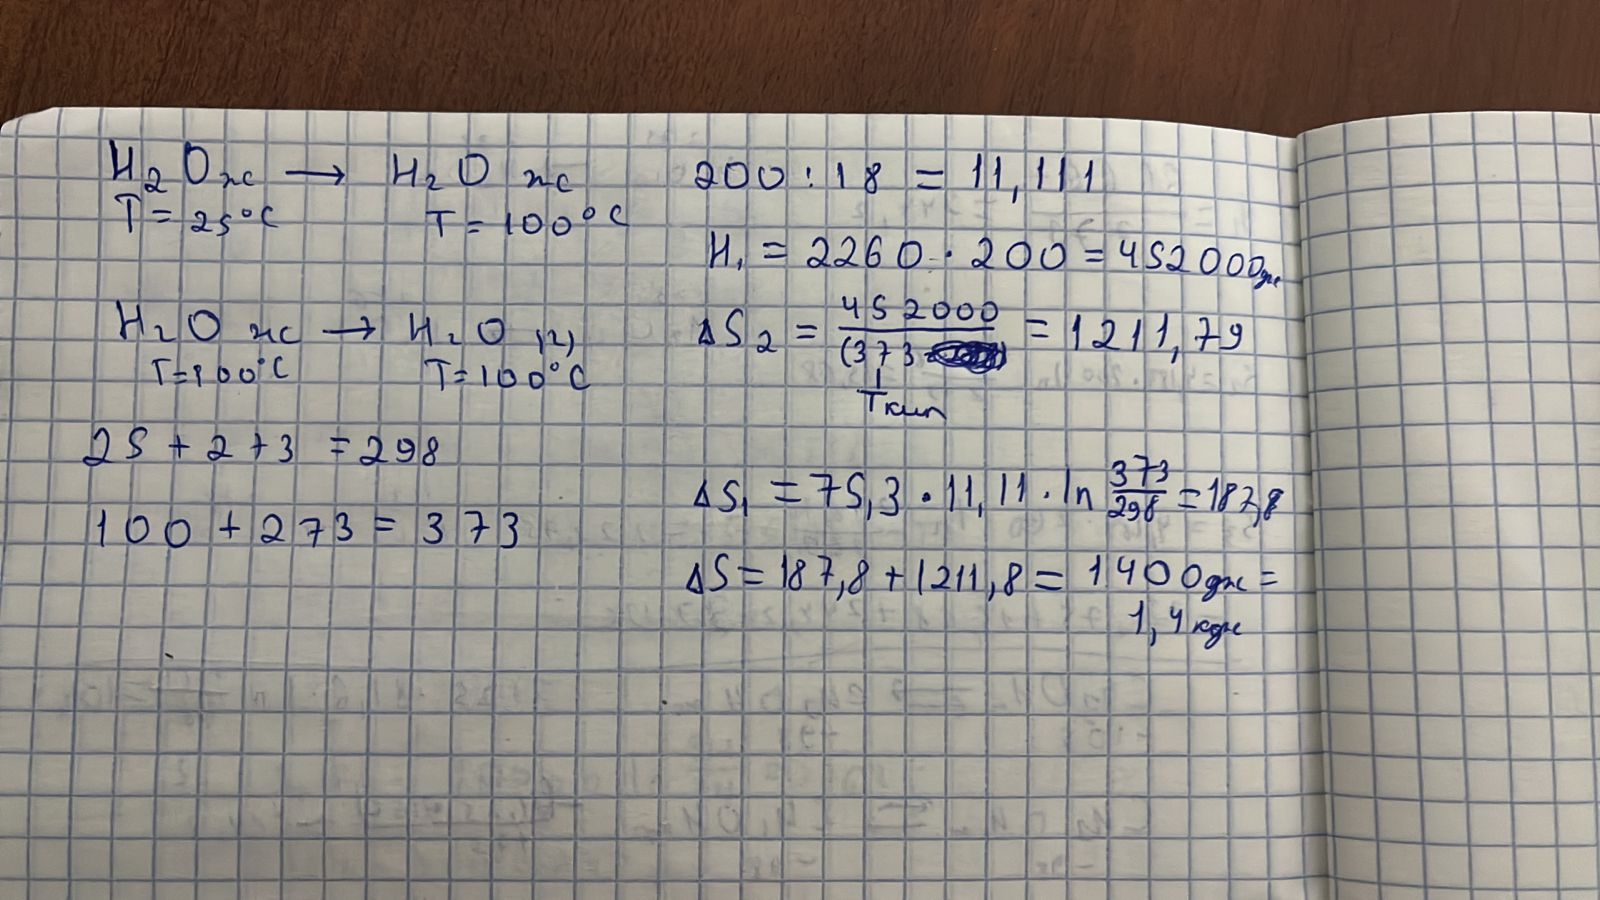 H₂O ж → H₂O ж
T = 25°C T = 100°C
H₂O ж → H₂O (г)
T=100°C T=100°C
25 + 2 + 3 = 298
100 + 273 = 373
200 : 18 = 11,111
H₁ = 2260 · 200 = 452000 дж
ΔS₂ = 452000 / (373) = 1211,79
Tкип
ΔS₁ = 75,3 · 11,11 · ln 373/298 = 187,8
ΔS = 187,8 + 1211,8 = 1400 дж =
1,4 кдж